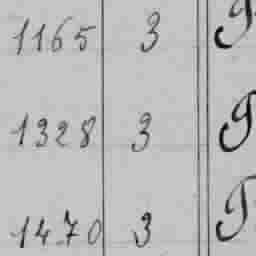 1165 3
1328 3
1470 3